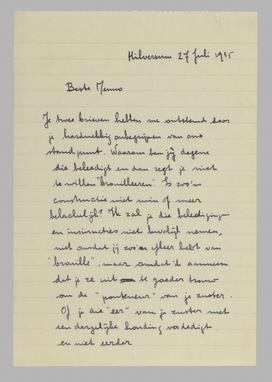 Hilversum 27 Juli 1935
Beste Menno
Je twee brieven hebben me ontstemd door
je hardnekkig onbegrijpen van ons
standpunt. Waarom ben jij degene
die beleedigt en dan zegt je niet
te willen "brouilleeren". Is zoo'n
constructie niet min of meer
belachelijk? Ik zal je die beleedigingen
en insinuaties niet kwalijk nemen,
niet omdat jij zoo'n afkeer hebt van
"brouille", maar omdat ik aanneem
dat je ze uit te goeder trouw
om de "ponteneur" van je zuster.
Of je die "eer" van je zuster met
een dergelijke houding verdedigt
en niet eerder